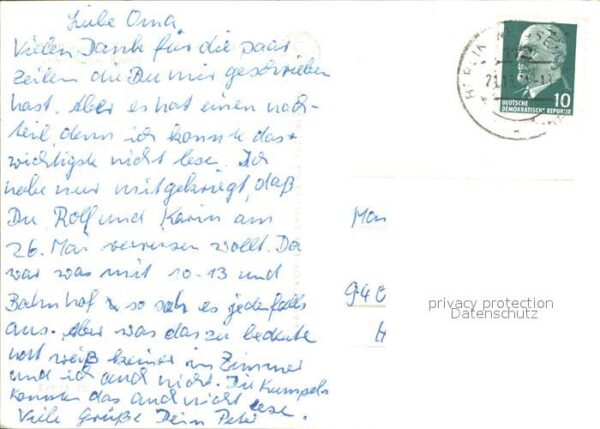 Liebe Oma
Vielen Dank für die paar
Zeilen die Du mir geschrieben
hast. Aber es hat einen nach-
teil, denn ich konnte das
wichtigste nicht lese. Ich
habe nur mitgekriegt, daß
Du, Rolf und Karin am
26. Mai verreisen wollt. Da
war was mit 10-13 und
Bahnhof so sah es jedenfalls
aus. Aber was das zu bedeute
hat weiß keiner im Zimmer
und ich auch nicht. Die Kumpels
konnten das auch nicht lese.
Viele Grüße Dein Peter
DEUTSCHE
DEMOKRATISCHE REPUBLIK
10
BERLIN
940
privacy protection
Datenschutz